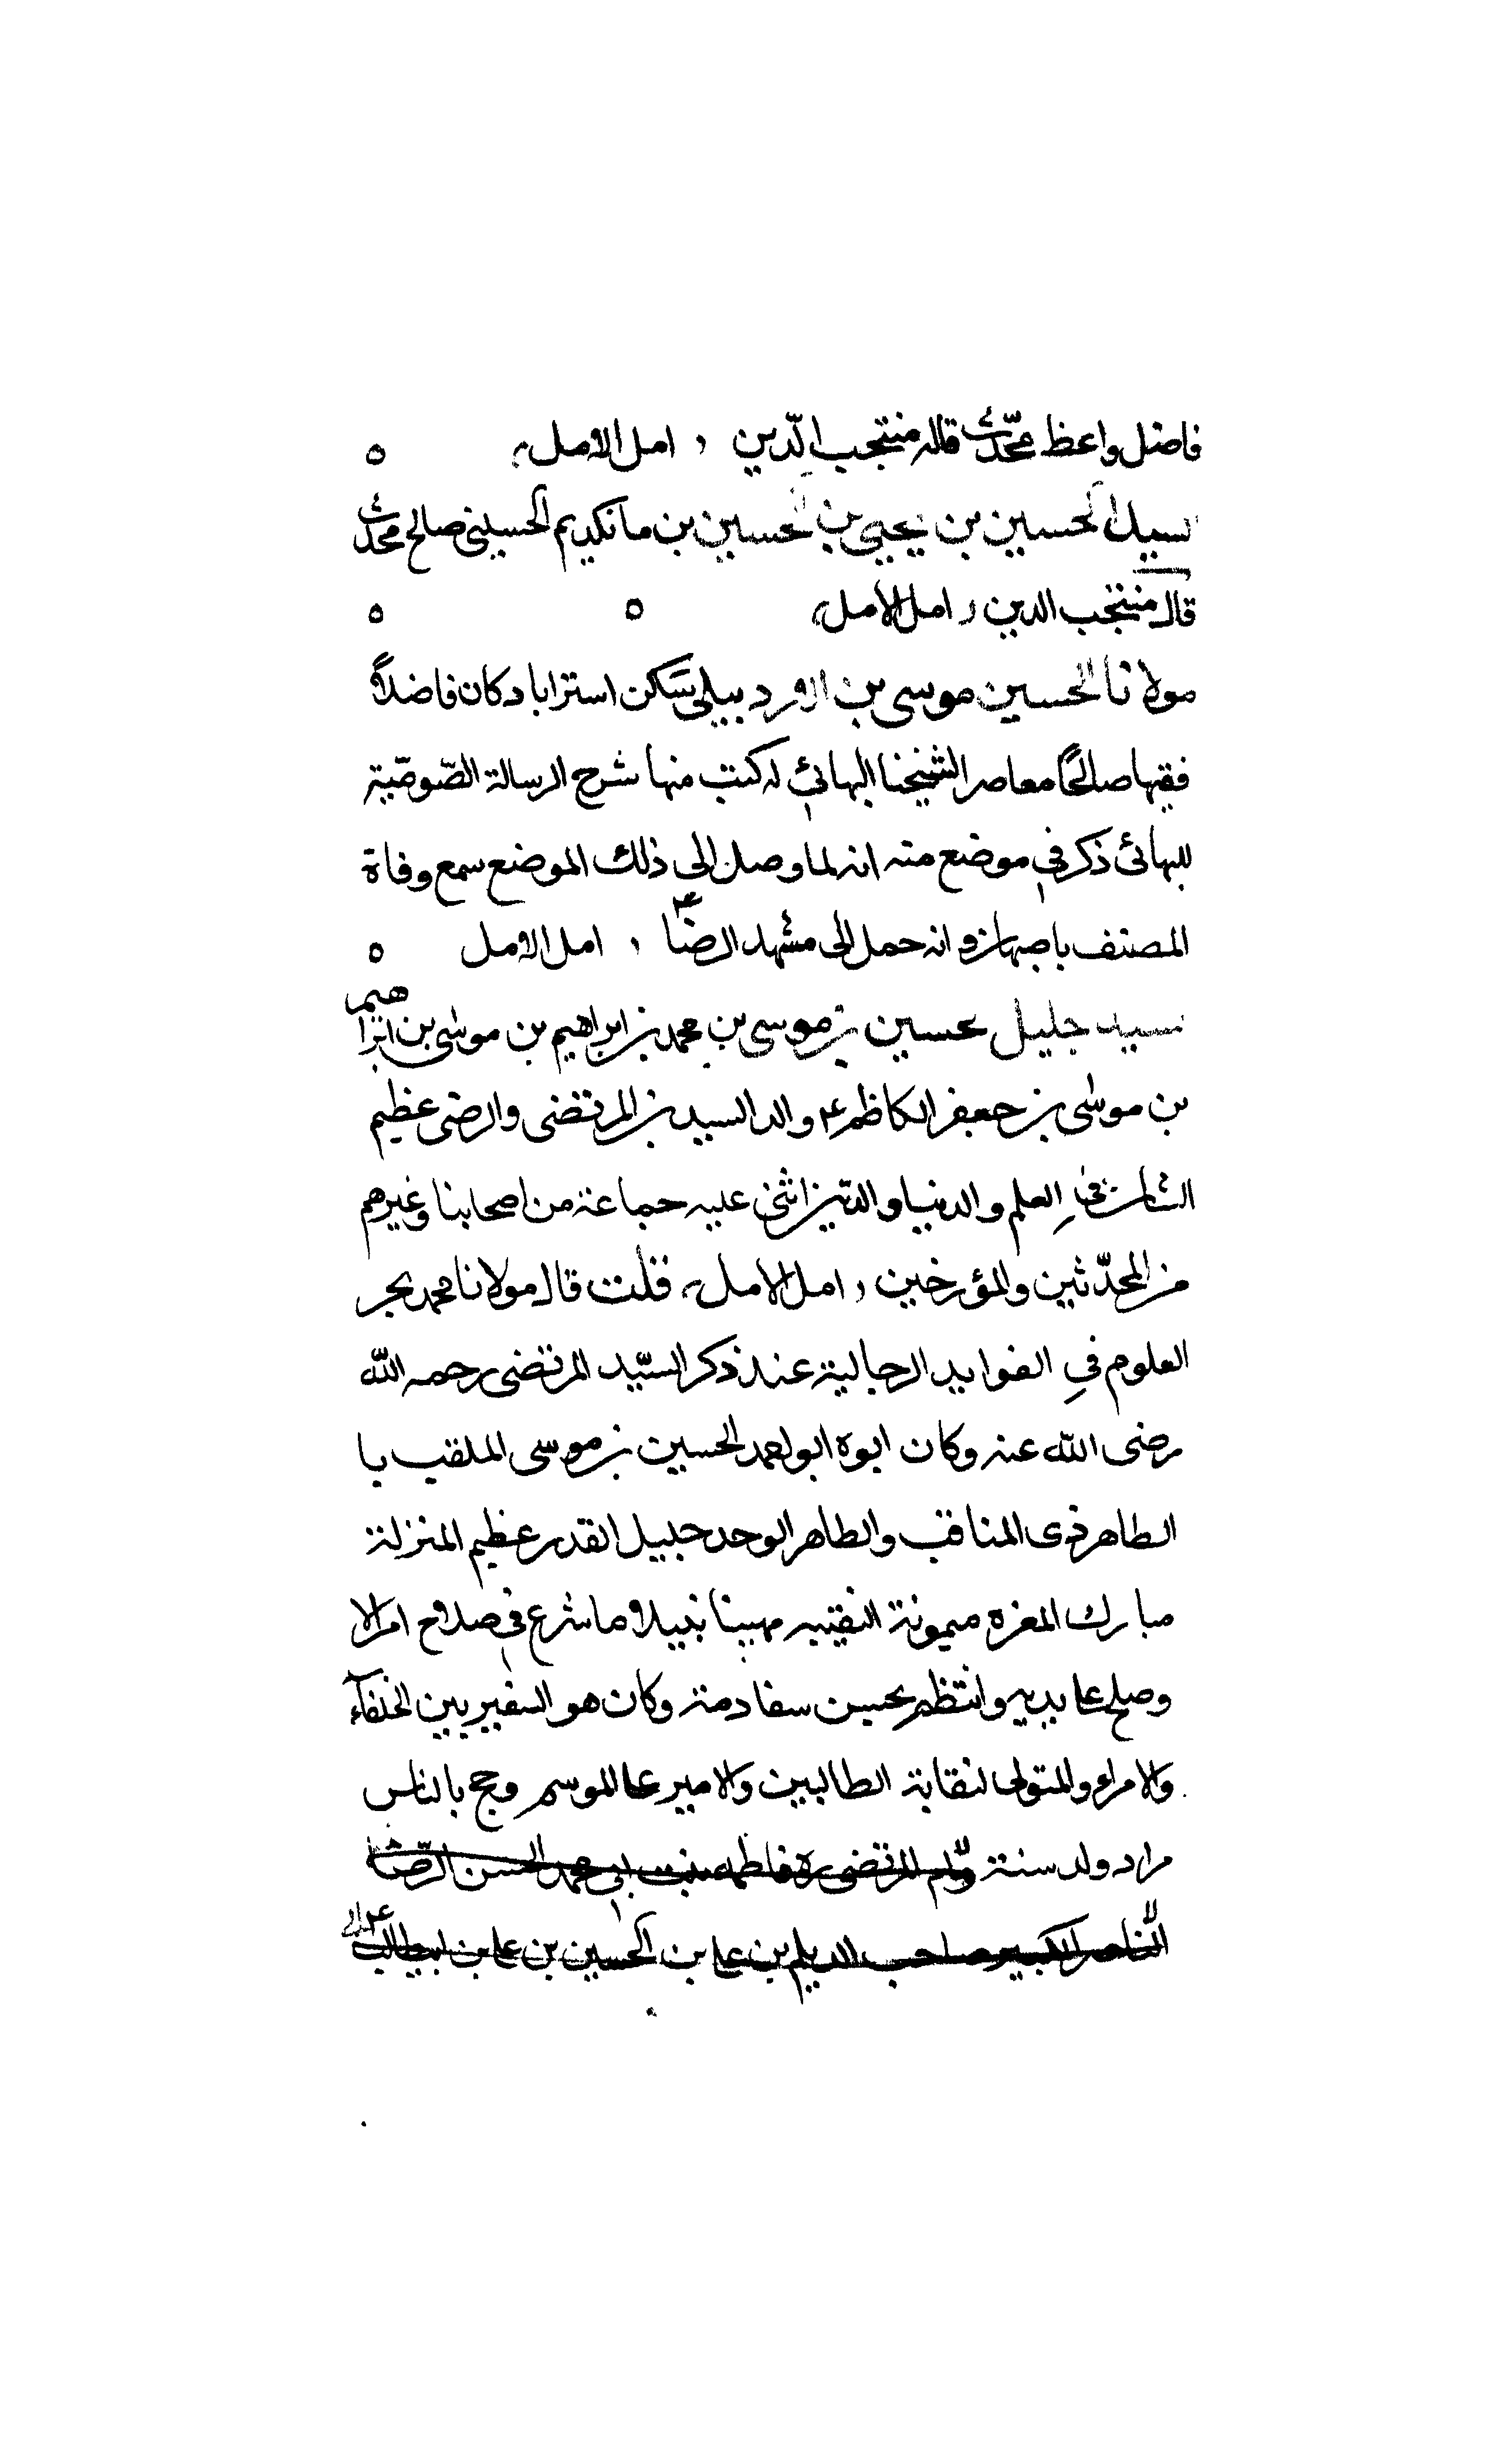 فاضل واعظ محدّث قاله منتجب الدّين ، امل الامل ه
سيد الحسين بن يحيى بن الحسين بن مانكديم الحسيني صالح محدث
قاله منتجب الدين ، امل الامل ه ه
مولانا الحسين موسى بن الاردبيلى سكن استراباد كان فاضلاً
فقيها صالحًا معاصر الشيخنا البهائي له كتب منها شرح الرسالة الصّومّية
للبهائى ذكر في موضع منه انه لما وصل الى ذلك الموضع سمع وفاة
المصنف باصبهان وانه حمل الى مشهد الرضا ع ، امل الامل ه
سيد جليل حسين بن موسى بن محمد بن ابراهيم بن موسى بن ابراهيم
بن موسى بن جعفر الكاظم ع والد السيدين المرتضى والرضى عظيم
الشان في العلم والدنيا والدّين اثنى عليه جماعة من اصحابنا وغيرهم
من المحدّثين والمؤرخين ، امل الامل قلت قال مولانا محمد بحر
العلوم في الفوايد الرجالية عند ذكر السيّد المرتضى رحمه الله
رضى الله عنه وكان ابوه ابو احمد الحسين بن موسى الملقب با
الطاهر ذى المناقب والطاهر الوحد جليل القدر عظيم المنزلة
مبارك الغره ميمونة النقيبه مهيبا نبيلا ما شرع في صلاح امر الا
وصلح على يديه وانتظم بحسن سفادمته وكان هو السفير بين الخلفآء
والامراء والمتولى لنقابة الطالبين والامير على الموسم وحج بالناس
مراد ولد سنة وام المرتضى ره فاطمه بنت ابى محمد الحسن الرّضا
النّاصر الكبير صاحب الديلم بن على بن الحسين بن على بن ابيطالب ع